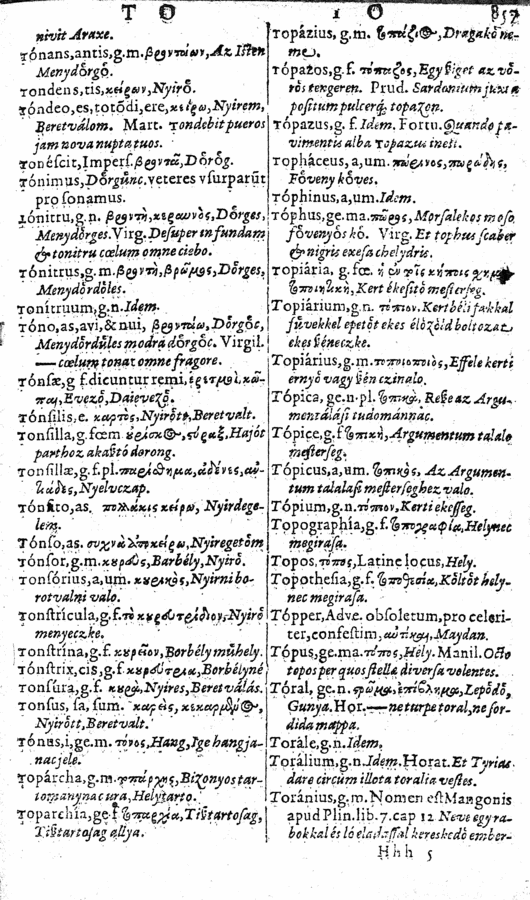 T O
I O
857
nivit Araxe.
Tónans,antis,g.m.βροντάων, Az Isten
Menydőrgő.
Tondens,tis,κείρων, Nyirő.
Tóndeo,es,totōdi,ere,κείρω, Nyirem,
Beretválom. Mart. Tondebit pueros
jam nova nupta tuos.
Tonéscit, Impers.βροντᾶ, Dőrőg.
Tónimus, Dőrgűnc. veteres vsurparūt
pro sonamus.
Tónitru,g.n. βροντὴ,κεραωνὸς, Dőrges,
Menydőrges. Virg. Desuper infundam
& tonitru cœlum omne ciebo.
Tónitrus,g.m.βροντὴ,βρῶμος, Dőrges,
Menydőrdőles.
Tonítruum,g.n. Idem.
Tóno,as,avi,& nui, βροντάω, Dőrgőc,
Menydőrdűles modra dőrgőc. Virgil.
— cœlum tonat omne fragore.
Tónsæ,g f.dicuntur remi,ἐρετμοὶ,κῶ-
παι, Evező, Daievező.
Tónsilis,e. καρτὸς, Nyirőtt, Beret valt.
Tonsilla,g.fœm. Hajót
parthoz akasztó dorong.
Tonsillæ,g.f.pl.παρίσθημα,ἀδένες,
Nyelvczap.
Tónsito,as. πολλάκις κείρω, Nyirdege-
lem.
Tónso,as. συχνὰ ἀποκείρω, Nyiregetőm
Tónsor,g.m.κουρεὺς, Barbély, Nyirő.
Tonsórius,a,um. κουρικὸς, Nyirni bo-
rotvalni valo.
Tonstrícula,g.f.τὸ κουρευτρίδιον, Nyirő
menyeczke.
Tonstrína,g.f.κουρεῖον, Borbély műhely.
Tónstrix,cis,g.f.κουρεύτρια, Borbélyné
Tonsúra,g.f. κουρὰ, Nyires, Beret válás.
Tonsus, sa, sum. καρεὶς, κεκαρμένος,
Nyirőtt, Beret valt.
Tónus,i,ge.m. τόνος, Hang, Ige hangja-
nac jele.
Topárcha,g.m. τοπάρχης, Bizonyos tar-
tomanynac ura, Helytarto.
Toparchía,ge.f. τοπαρχία, Tisztartosag,
Tisztartosag allya.
Topázius, g.m. τοπάζιος, Dragakő ne-
me.
Tópazos,g.f. τόπαζος, Egy sziget az vő-
rős tengeren. Prud. Sardonium juxta
positum pulcerq; topazon.
Tópazus,g.f. Idem. Fortu. Quando pa-
vimentis alba Topazus inest.
Topháceus,a,um. πώρινος,πωρώδης,
Főveny kőves.
Tóphinus,a,um. Idem.
Tóphus,ge.ma.πῶρος, Morsalekos moso
fővenyős kő. Virg. Et tophus scaber
& nigris exesa chelydris.
Topiária, g.fœ. ἡ ἐν τοῖς κήποις
τοπιητικὴ, Kert ékesitő mesterseg.
Topiárium,g.n. τόπιον. Kert béli fakkal
fűvekkel epetőt ekes élőződ boltozat
ekes széneczke.
Topiárius,g.m.τοποιοποιὸς, Effele kerti
ernyő vagy szén czinalo.
Tópica, ge.n.pl. τοπικὰ, Resze az Argu-
mentálási tudománnac.
Tópice,g.f τοπικὴ, Argumentum talalo
mesterseg.
Tópicus,a,um. τοπικὸς, Az Argumen-
tum talalasi mesterseghez valo.
Tópium,g.n.τόπιον, Kerti ekesseg.
Topographía,g.f. τοπογραφία, Helynec
megirasa.
Topos, τόπος, Latine locus, Hely.
Topothesía,g.f. τοποθεσία, Kőltőt hely-
nec megirasa.
Tópper, Adve. obsoletum, pro celeri-
ter, confestim, αὐτίκα, Maydan.
Tópus,ge.ma.τόπος, Hely. Manil. Octo
topos per quos stellæ diversa volentes.
Tóral, ge.n. στρῶμα,ἐπίβλημα, Lepődő,
Gunya. Hor. — ne turpe toral, ne sor-
dida mappa.
Toràle,g.n. Idem.
Torálium,g.n. Idem. Horat. Et Tyrias
dare circum illota toralia vestes.
Toránius, g.m. Nomen est Mangonis
apud Plin. lib. 7. cap 12 Neve egy ra-
bokkal és ló eladassal kereskedő ember-
Hhh 5